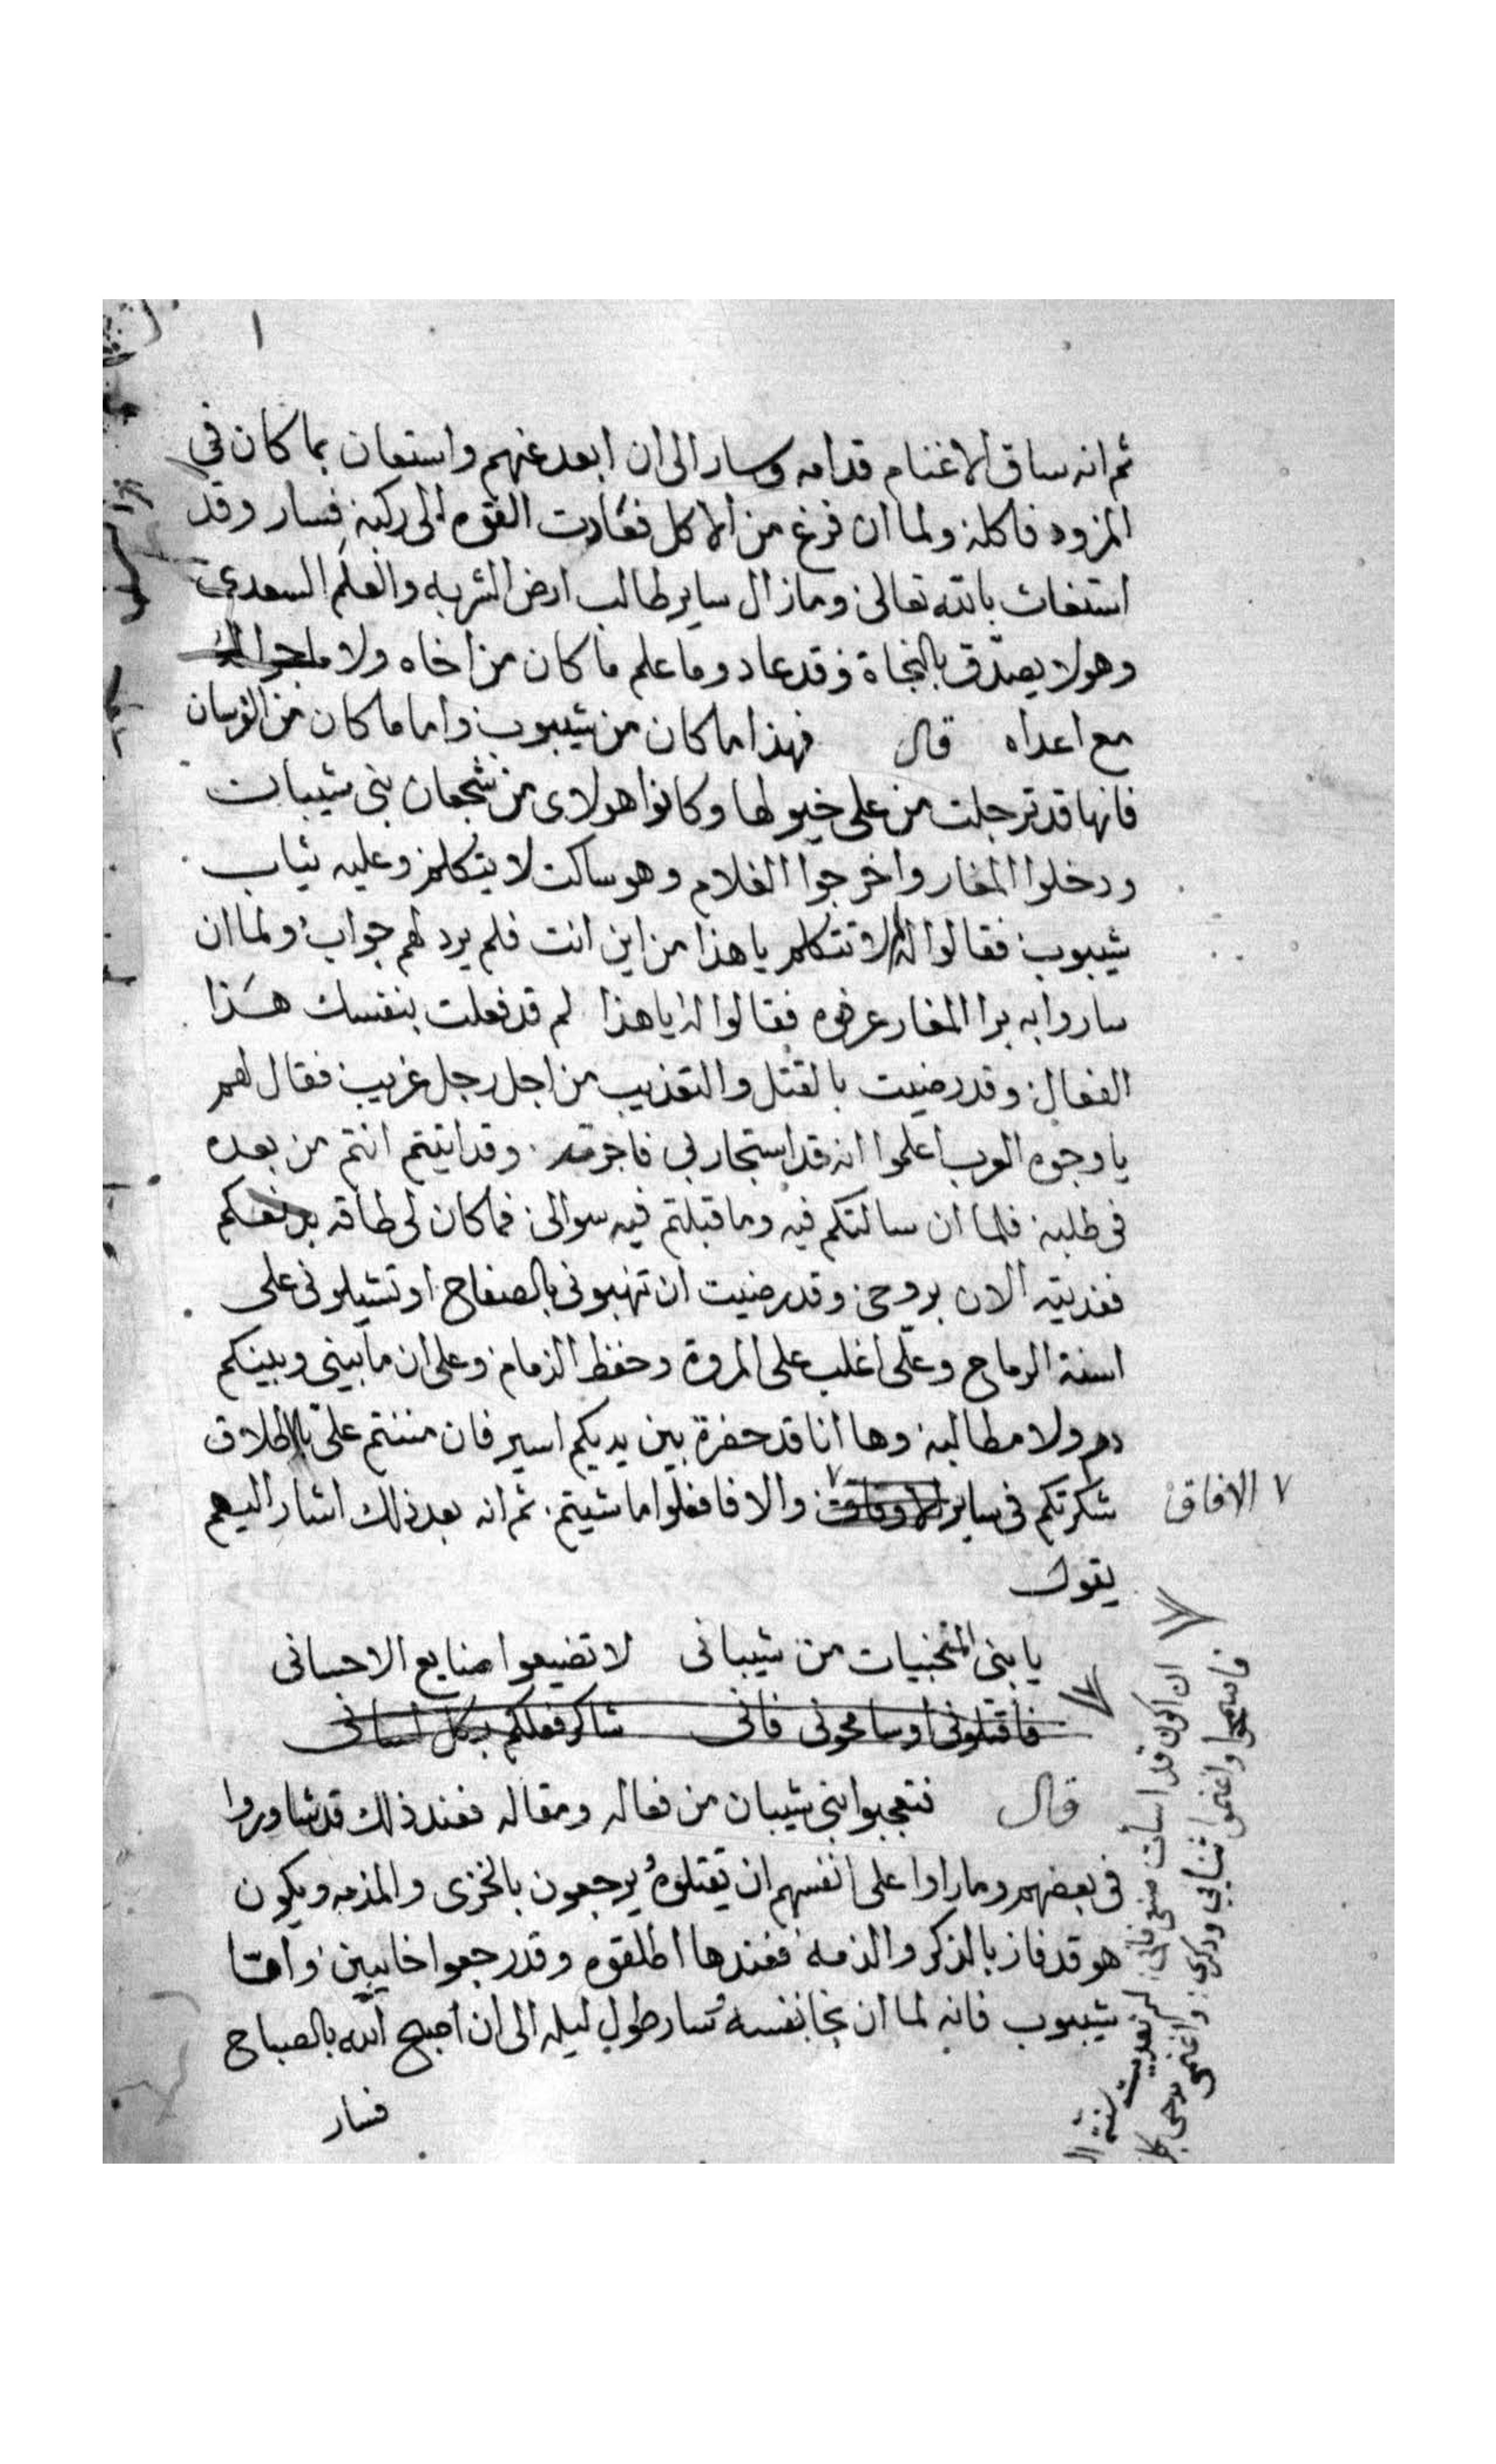 ١
ثم انه ساق الاغنام قدامه وسار الى ان ابعد عنهم واستعان بما كان في
المزود فاكله ولما ان فرغ من الاكل فعادت القوه الى ركبه فسار وقد
استغاث بالله تعالى وما زال ساير طالب ارض الشربه والعلم السعدى
وهو لا يصدق بالنجاة وقد عاد وما علم ما كان من اخاه ولا ما جرا له
مع اعداه قال فهذا ما كان من شيبوب واما ما كان من الفرسان
فانها قد ترجلت من على خيولها وكانوا هولاى من شجعان بنى شيبان
ودخلوا المغار واخرجوا الغلام وهو ساكت لا يتكلم وعليه ثياب
شيبوب فقالوا له لم لا تتكلم يا هذا من اين انت فلم يرد لهم جواب ولما ان
ساروا به برا المغار عرفوه فقالوا له يا هذا لم قد فعلت بنفسك هذا
الفعال وقد رضيت بالقتل والتعذيب من اجل رجل غريب فقال لهم
يا وجوه العرب اعلموا انه قد استجار بى فاجرته وقد اتيتم انتم من بعده
فى طلبه فلما ان سالتكم فيه وما قبلتم فيه سوالى فما كان لى طاقه بدفعكم
ففديته الان بروحى وقد رضيت ان تنهبونى بالصفاح او تشيلونى على
اسنة الرماح وعلى اغلب على المروة وحفظ الذمام وعلى ان ما بينى وبينكم
دم ولا مطالبه وها انا قد حضرة بين يديكم اسير فان مننتم على بالاطلاق
شكرتكم فى ساير الاوقات والا فافعلوا ما شيتم ثم انه بعد ذلك اشار اليهم
٧ الافاق
يقول
يا بنى المنجبيات من شيبانى لا تضيعوا صنايع الاحسانى
فاقتلونى او سامحونى فانى شاكر فعلكم بكل لسانى
قال فتعجبوا بنى شيبان من فعاله ومقاله فعند ذلك قد شاوروا
فى بعضهم وما راوا على انفسهم ان تقتلوه يرجعون بالخزى والمذمه ويكون
هو قد فاز بالذكر والذمة فعندها اطلقوه وقد رجعوا خايبين واما
شيبوب فانه لما ان نجا بنفسه سار طول ليله الى ان اصبح الله بالصباح
فسار
ان اكون قد اسأت صنعى فانى لم تعديت
فاسمحوا واغنموا ثنايى وذكرى واغنمى